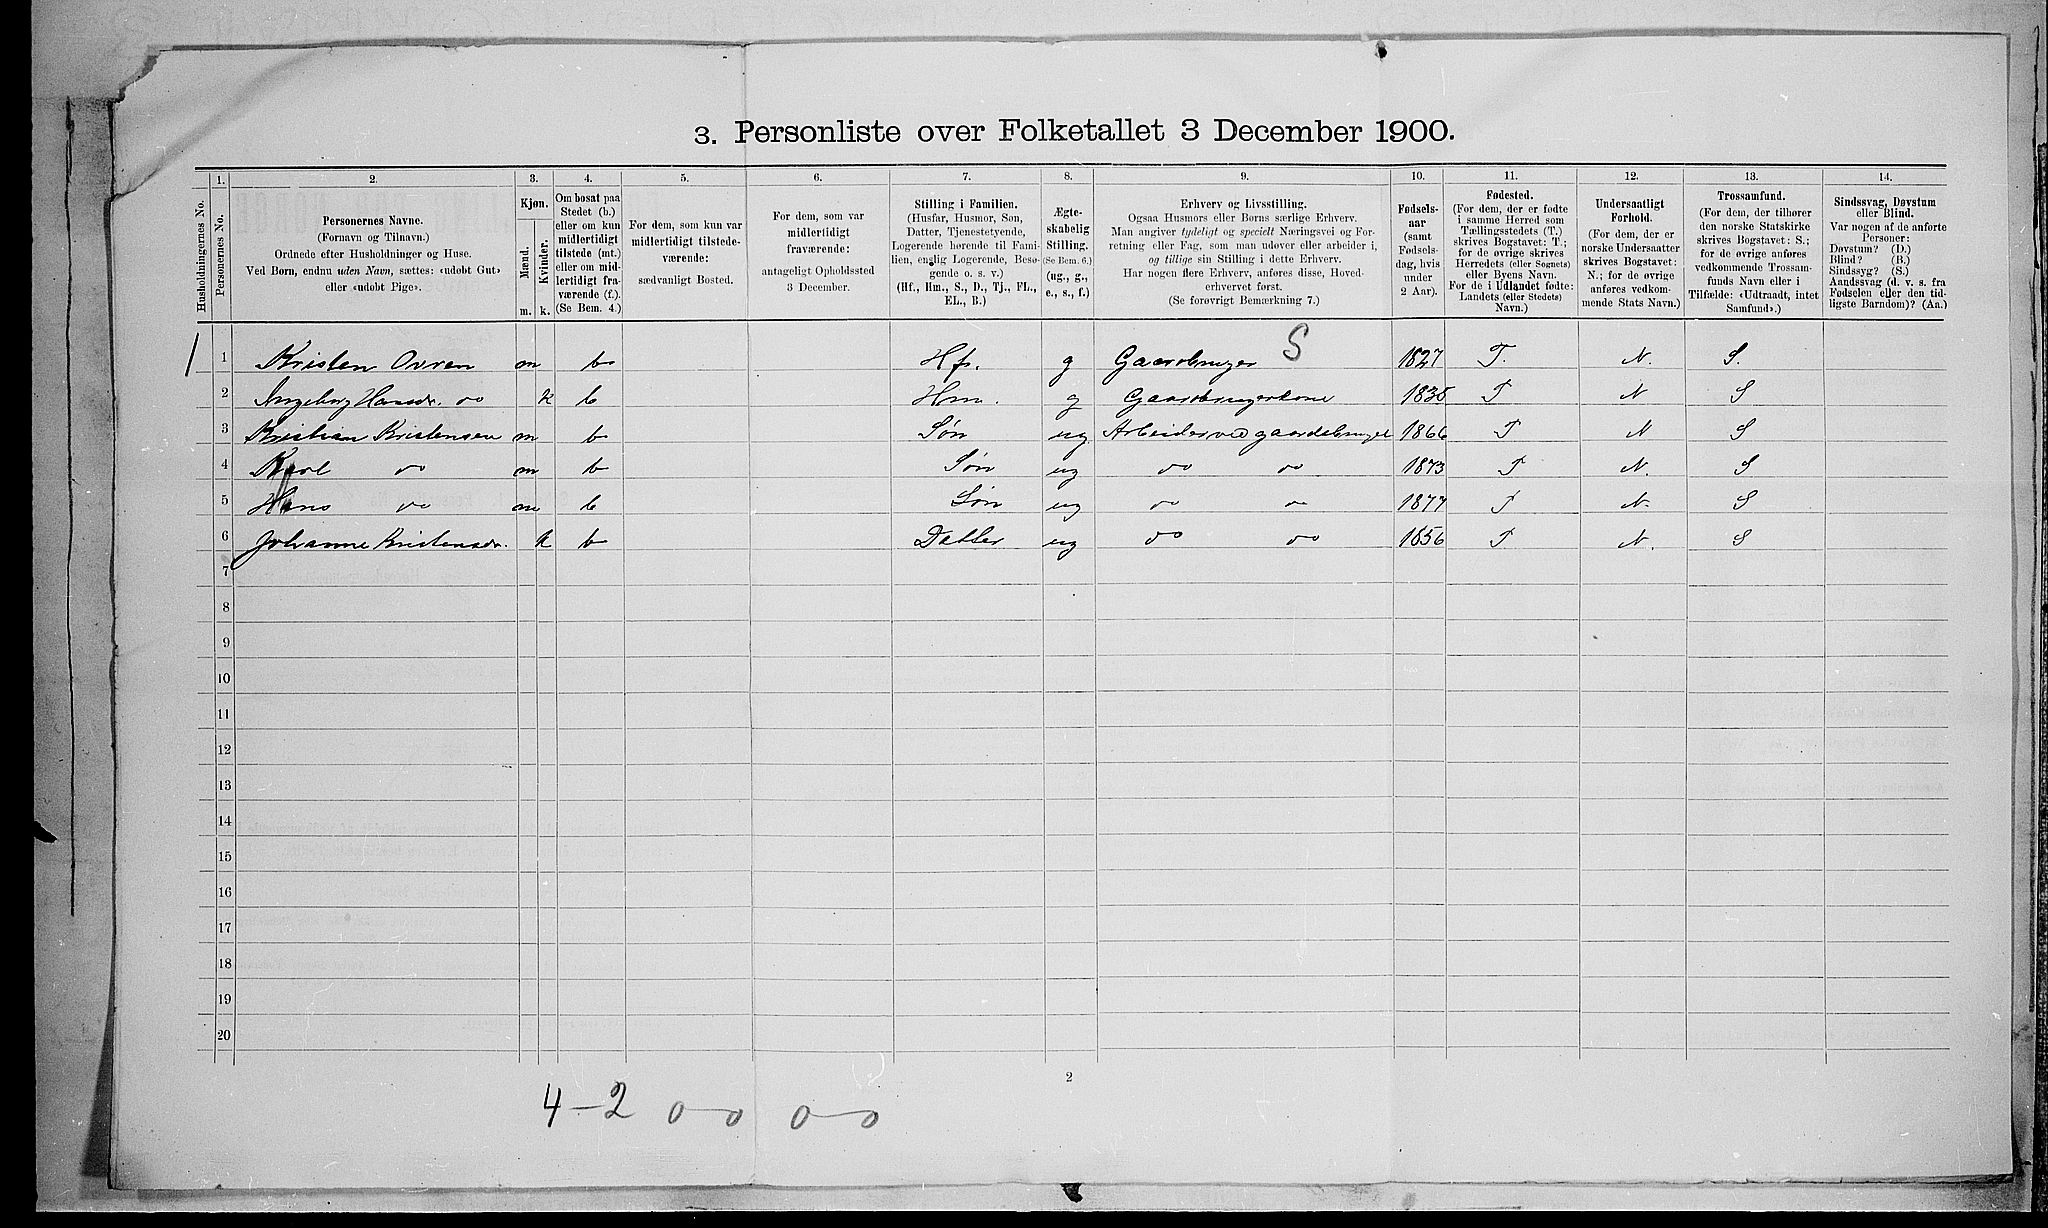 3. Personliste over Folketallet 3 December 1900.
1. 2. 3. 4. 5. 6. 7. 8. 9. 10. 11. 12. 13. 14.
Husholdningernes No.
Personernes No.
Personernes Navne.
(Fornavn og Tilnavn.)
Ordnede efter Husholdninger og Huse.
Ved Børn, endnu uden Navn, sættes: «udøbt Gut»
eller «udøbt Pige».
Kjøn.
Mænd.
Kvinder.
m. k.
Om bosat paa
Stedet (b.)
eller om kun
midlertidigt
tilstede (mt.)
eller om mid-
lertidigt fra-
værende (f.).
(Se Bem. 4.)
For dem, som kun var
midlertidigt tilstede-
værende:
sædvanligt Bosted.
For dem, som var
midlertidigt
fraværende:
antageligt Opholdssted
3 December.
Stilling i Familien.
(Husfar, Husmor, Søn,
Datter, Tjenestetyende,
Logerende hørende til Fami-
lien, enslig Logerende, Besø-
gende o. s. v.)
(Hf., Hm., S., D., Tj., FL.,
EL., B.)
Ægte-
skabelig
Stilling.
(Se Bem. 6.)
(ug., g.,
e., s., f.)
Erhverv og Livsstilling.
Ogsaa Husmors eller Børns særlige Erhverv.
Man angiver tydeligt og specielt Næringsvei og For-
retning eller Fag, som man udøver eller arbeider i,
og tillige sin Stilling i dette Erhverv.
Har nogen flere Erhverv, anføres disse, Hoved-
erhvervet først.
(Se forøvrigt Bemærkning 7.)
Fødsels-
aar
(samt
Fødsels-
dag, hvis
under
2 Aar).
Fødested.
(For dem, der er fødte
i samme Herred som
Tællingsstedets (T.)
skrives Bogstavet: T.;
for de øvrige skrives
Herredets (eller Sognets)
eller Byens Navn.
For de i Udlandet fødte:
Landets (eller Stedets)
Navn.)
Undersaatligt
Forhold.
(For dem, der er
norske Undersaatter
skrives Bogstavet:
N.; for de øvrige
anføres vedkom-
mende Stats Navn.)
Trossamfund.
(For dem, der tilhører
den norske Statskirke
skrives Bogstavet: S.;
for de øvrige anføres
vedkommende Trossam-
funds Navn eller i
Tilfælde: «Udtraadt, intet
Samfund».)
Sindssvag, Døvstum
eller Blind.
Var nogen af de anførte
Personer:
Døvstum? (D.)
Blind? (B.)
Sindssyg? (S.)
Aandssvag (d. v. s. fra
Fødselen eller den tid-
ligste Barndom)? (Aa.)
1 1 Kristen Ovren m b Hf. g Gaardbruger S 1827 T. N. S.
2 Ingeborg Hansdr. do k b Hm. g Gaardbrugerkone 1835 T N S
3 Kristian Kristensen m b Søn ug Arbeider ved gaardsbruget 1866 T N S
4 Karl do m b Søn ug do do 1873 T N. S
5 Hans do m b Søn ug do do 1877 T N. S
6 Johanne Kristensdr. k b Datter ug do do 1856 T N. S
7
8
9
10
11
12
13
14
15
16
17
18
19
20
2
4-2 0-0 0-0